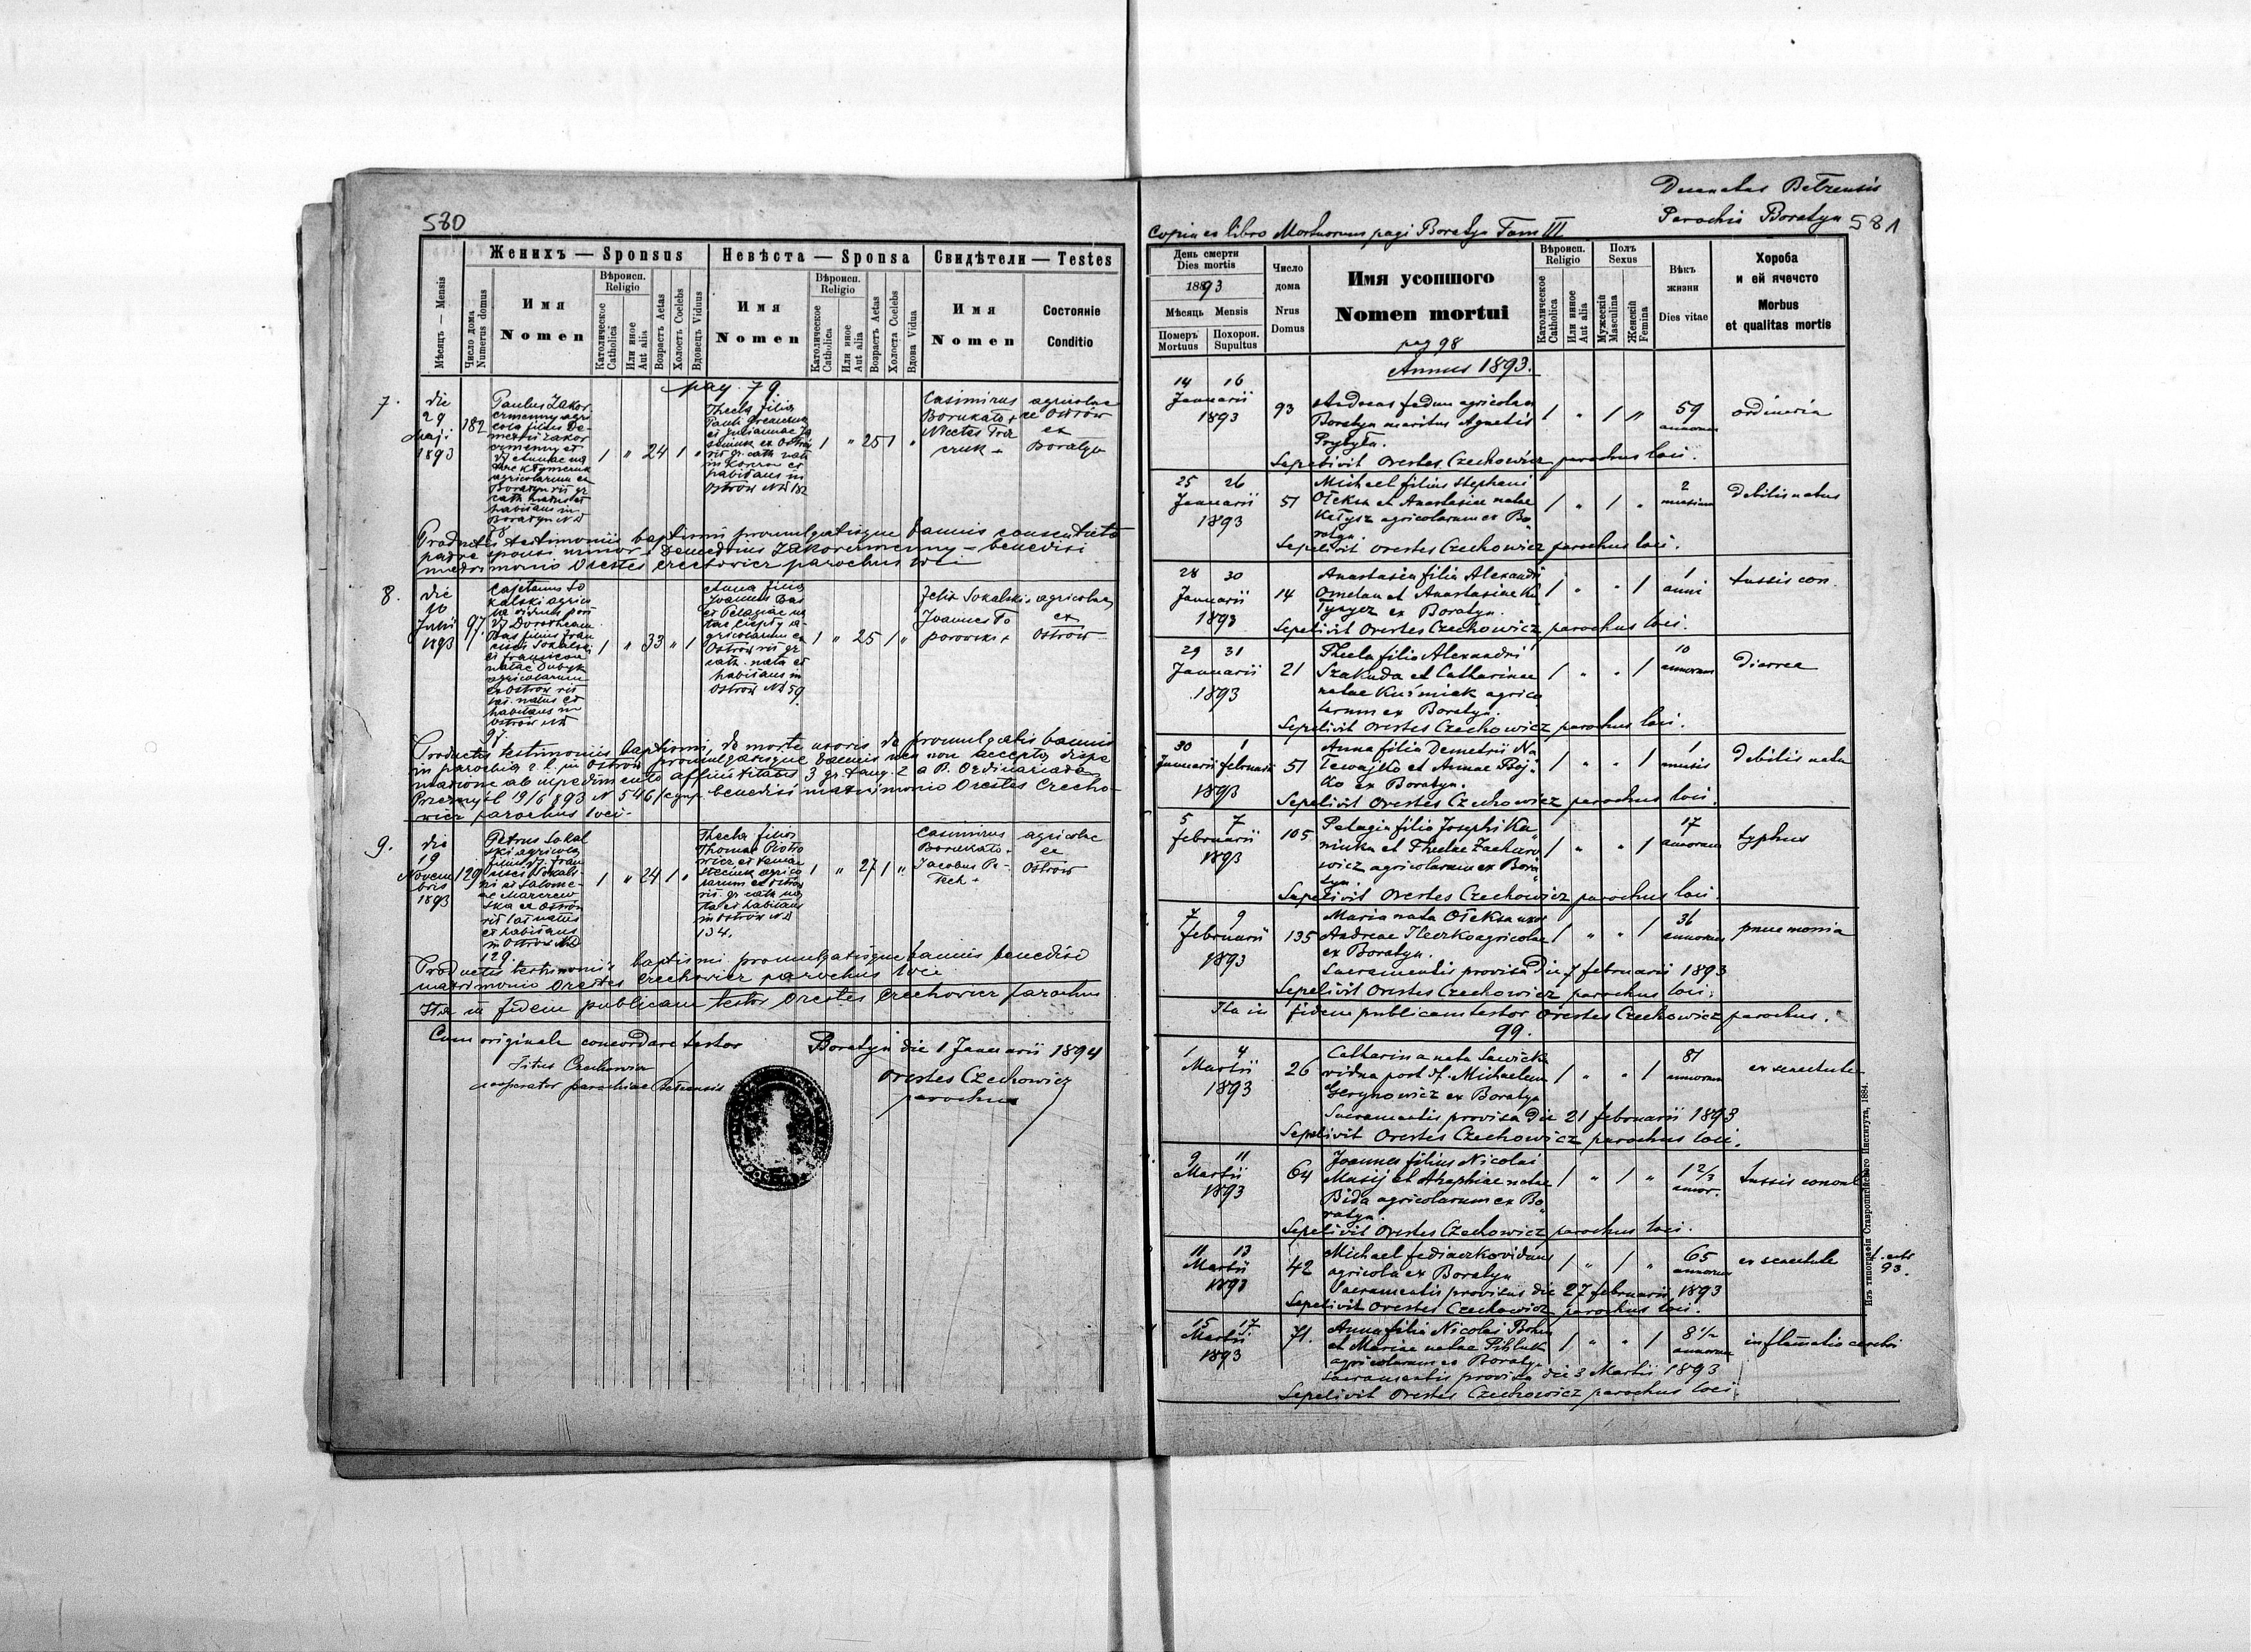 580
Женихъ — Sponsus
Невѣста — Sponsa
Свидѣтели — Testes
Мѣсяцъ — Mensis
Число дома
Numerus domus
Имя
Nomen
Вѣроисп.
Religio
Католическое
Catholica
Или иное
Aut alia
Возрастъ Aetas
Холостъ Coelebs
Вдовецъ Viduus
Имя
Nomen
Вѣроисп.
Religio
Католическое
Catholica
Или иное
Aut alia
Возрастъ Aetas
Холоста Coelebs
Вдова Vidua
Имя
Nomen
Состояніе
Conditio
pag. 79
7.
die
29
Maji
1893
182
Paulus Zakor
czmenny agri
cola filius De-
metrii Zakor
czmenny et
agricolarum ex
Boratyn rit gr
cath natus et
habitans in
Boratyn No
1 " 24 1 "
Thecla filia
Pauli
et Juliannae
rit gr. cath nata
in Korczow et
habitans in
Ostrów No 182
1 " 25 1 "
Casimirus
+
agricolae
ex Ostrów
et
Boratyn
Productis testimoniis baptismi promulgatisque bannis consentiente
patre sponsi minor. Demetrius Zakorczmenny — benedixi
matrimonio Orestes Czechowicz parochus loci
8.
die
10
Julii
1893
97.
Cajetanus So
kalski agrico
la viduus post
Dorotheam
Bas filius Fran
cisci Sokalski
et Franciscae
natae Dubyk
agricolarum
ex Ostrów rit
lat. natus et
habitans in
Ostrów No
97.
1 " 33 " 1
Anna filia
Joannis Bas
et Pelagiae na
tae
gricolarum ex
Ostrów rit gr
cath. nata et
habitans in
Ostrów No 59.
1 " 25 1 "
Felix Sokalski +
Joannes To
porowski +
agricolae
ex
Ostrów
Productis testimoniis baptismi, de morte uxoris, de promulgatis bannis
in parochia r. l. in Ostrów promulgatisque bannis nec non accepta dispe
nsatione ab impedimento affinitatis 3 gr. tang. 2 a R. Ordinariatu
Przemyśl 19/6 893 N 546/ benedixi matrimonio Orestes Czecho-
wicz parochus loci.
9.
die
19
Novem
bris
1893
129
Petrus Sokal
ski agricola
filius Fran
cisci Sokals
ki et Salome-
ae
ska ex Ostrów
rit lat natus
et habitans
in Ostrów No
129.
1 " 24 1 "
Thecla filia
Thomae Piotro
wicz et
agrico
larum ex Ostrów
rit. gr cath na
ta et habitans
in Ostrów No
134.
1 " 27 1 "
Casimirus
+
Jacobus Pe-
tech +
agricolae
ex
Ostrów
Productis testimoniis baptismi promulgatisque bannis benedixi
matrimonio Orestes Czechowicz parochus loci
Ita in fidem publicam testor Orestes Czechowicz parochus
Cum originale concordare testor
Titus Czechowicz
cooperator parochiae
Boratyn die 1 Januarii 1894
Orestes Czechowicz
parochus
Decanatus Bełzensis
Parochia Boratyn
581
Copia ex libro Mortuorum pagi Boratyn Tom III
День смерти
Dies mortis
1893
Мѣсяць Mensis
Померъ
Mortuus
Похорон.
Sepultus
Число
дома
Nrus
Domus
Имя усопшого
Nomen mortui
Вѣроисп.
Religio
Католическое
Catholica
Или иное
Aut alia
Полъ
Sexus
Мужескій
Masculina
Женскій
Femina
Вѣкъ
жизни
Dies vitae
Хороба
и ей ячечсто
Morbus
et qualitas mortis
pag 98
Annus 1893.
14 16
Januarii
1893
93
Andreas Fedun agricola ex
Boratyn maritus Agnetis
Prybyła.
1 " 1 "
59
annorum
ordinaria
Sepelivit Orestes Czechowicz parochus loci.
25 26
Januarii
1893
51
Michael filius Stephani
Ołeksa et Anastasiae natae
Kołysz agricolarum ex Bo
ratyn.
1 " 1 "
2
mensium
debilis natus
Sepelivit Orestes Czechowicz parochus loci.
28 30
Januarii
1893
14
Anastasia filia Alexandri
Omelan et Anastasiae
ex Boratyn.
1 " " 1
1
anni
tussis con.
Sepelivit Orestes Czechowicz parochus loci.
29 31
Januarii
1893
21
Thecla filia Alexandri
Szakuda et Catharinae
natae Kuśmiak agrico
larum ex Boratyn.
1 " " 1
10
annorum
diarrea
Sepelivit Orestes Czechowicz parochus loci.
30 1
Januarii Februarii
1893
51
Anna filia Demetrii Na
lewajko et Annae Boj
ko ex Boratyn.
1 " " 1
1
mensis
debilis nata
Sepelivit Orestes Czechowicz parochus loci.
5 7
Februarii
1893
105
Pelagia filia Josephi Ka
niuka et Theclae Zacharo
wicz agricolarum ex Bora
tyn.
1 " " 1
17
annorum
typhus
Sepelivit Orestes Czechowicz parochus loci.
7 9
Februarii
1893
135
Maria nata Ołeksa uxor
Andreae Ileczko agricolae
ex Boratyn.
1 " " 1
36
annorum
pneumonia
Sacramentis provisa die 7 februarii 1893
Sepelivit Orestes Czechowicz parochus loci.
Ita in fidem publicam testor Orestes Czechowicz parochus.
99.
1 4
Martii
1893
26
Catharina nata Sawicka
vidua post Michaelem
Gerynowicz ex Boratyn
1 " " 1
81
annorum
ex senectute
Sacramentis provisa die 21 februarii 1893
Sepelivit Orestes Czechowicz parochus loci.
9 11
Martii
1893
64
Joannes filius Nicolai
Musij et Agaphiae natae
Bida agricolarum ex Bo
ratyn.
1 " 1 "
1 2/3
annor.
tussis convul
Sepelivit Orestes Czechowicz parochus loci.
11 13
Martii
1893
42
Michael Fediaczko viduus
agricola ex Boratyn
1 " 1 "
65
annorum
ex senectute
Sacramentis provisus die 27 februarii 1893
Sepelivit Orestes Czechowicz parochus loci.
15 17
Martii
1893
71.
Anna filia Nicolai
et Mariae natae
agricolarum ex Boratyn
1 " " 1
8 1/2
annorum
inflamatio cerebri
Sacramentis provisa die 3 Martii 1893
Sepelivit Orestes Czechowicz parochus loci.
Изъ типографіи Ставропигійского Института, 1884.